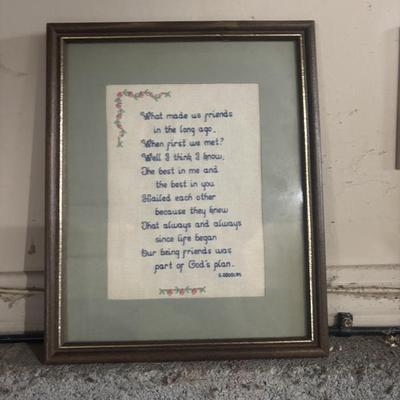 What made us friends
in the long ago.
When first we met?
Well I think I know,
The best in me and
the best in you
Hailed each other
because they knew
That always and always
since life began
Our being friends was
part of God's plan.